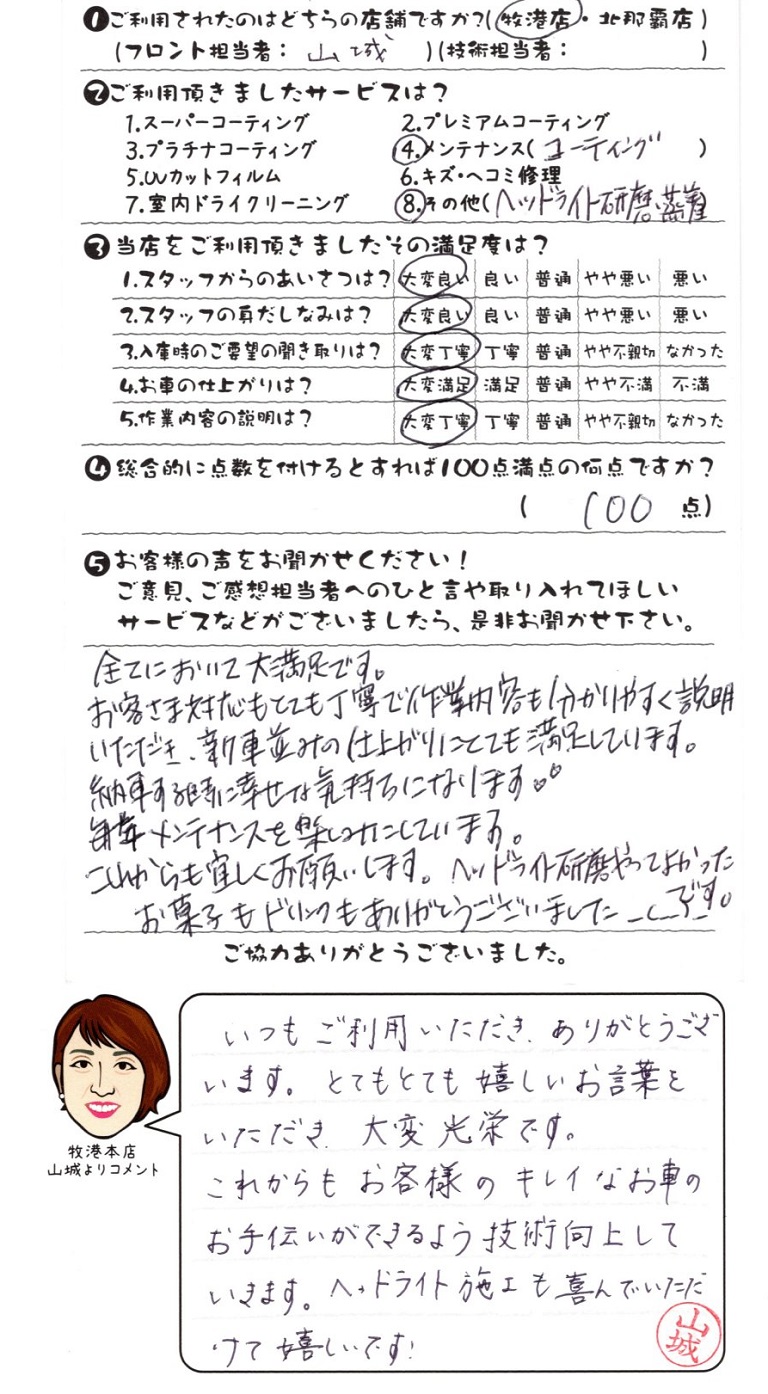 ❶ご利用されたのはどちらの店舗ですか?(牧港店・北那覇店)
(フロント担当者: 山城 )(技術担当者: )
❷ご利用頂きましたサービスは?
1.スーパーコーティング 2.プレミアムコーティング
3.プラチナコーティング 4.メンテナンス(コーティング)
5.UVカットフィルム 6.キズ・ヘコミ修理
7.室内ドライクリーニング 8.その他(ヘッドライト研磨、蒸着
❸当店をご利用頂きましたその満足度は?
1.スタッフからのあいさつは? 大変良い 良い 普通 やや悪い 悪い
2.スタッフの身だしなみは? 大変良い 良い 普通 やや悪い 悪い
3.入庫時のご要望の聞き取りは? 大変丁寧 丁寧 普通 やや不親切 なかった
4.お車の仕上がりは? 大変満足 満足 普通 やや不満 不満
5.作業内容の説明は? 大変丁寧 丁寧 普通 やや不親切 なかった
❹総合的に点数を付けるとすれば100点満点の何点ですか?
( 100 点)
❺お客様の声をお聞かせください!
ご意見、ご感想担当者へのひと言や取り入れてほしい
サービスなどがございましたら、是非お聞かせ下さい。
全てにおいて大満足です。
お客さま対応もとても丁寧で作業内容も分かりやすく説明
いただき、新車並みの仕上がりにとても満足しています。
納車する時に幸せな気持ちになります♡♡
毎年メンテナンスを楽しみにしています。
これからも宜しくお願いします。ヘッドライト研磨やってよかった
です。
お菓子もドリンクもありがとうございました
ご協力ありがとうございました。
いつもご利用いただき、ありがとうござ
います。とてもとても嬉しいお言葉を
いただき、大変光栄です。
これからもお客様のキレイなお車の
お手伝いができるよう技術向上して
いきます。ヘッドライト施工も喜んでいただ
けて嬉しいです!
牧港本店
山城よりコメント
山城